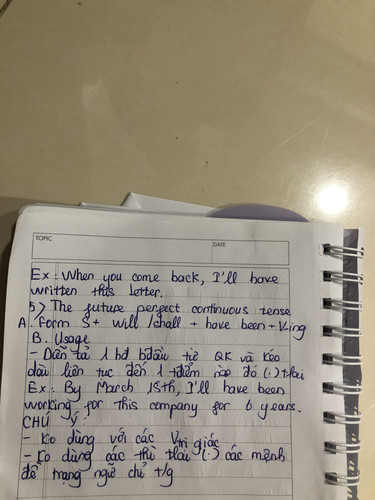 TOPIC DATE
Ex: When you come back, I'll have
written this letter.
5) The future perfect continuous tense
A. Form S + will / shall + have been + V-ing
B. Usage
- Diễn tả 1 hđ bđầu từ QK và kéo
dài liên tục đến 1 tđiểm nào đó (.) tlai
Ex: By March 15th, I'll have been
working for this company for 6 years.
CHÚ Ý:
- Ko dùng với các V tri giác
- Ko dùng các thì tlai (.) các mệnh
đề trạng ngữ chỉ t/g